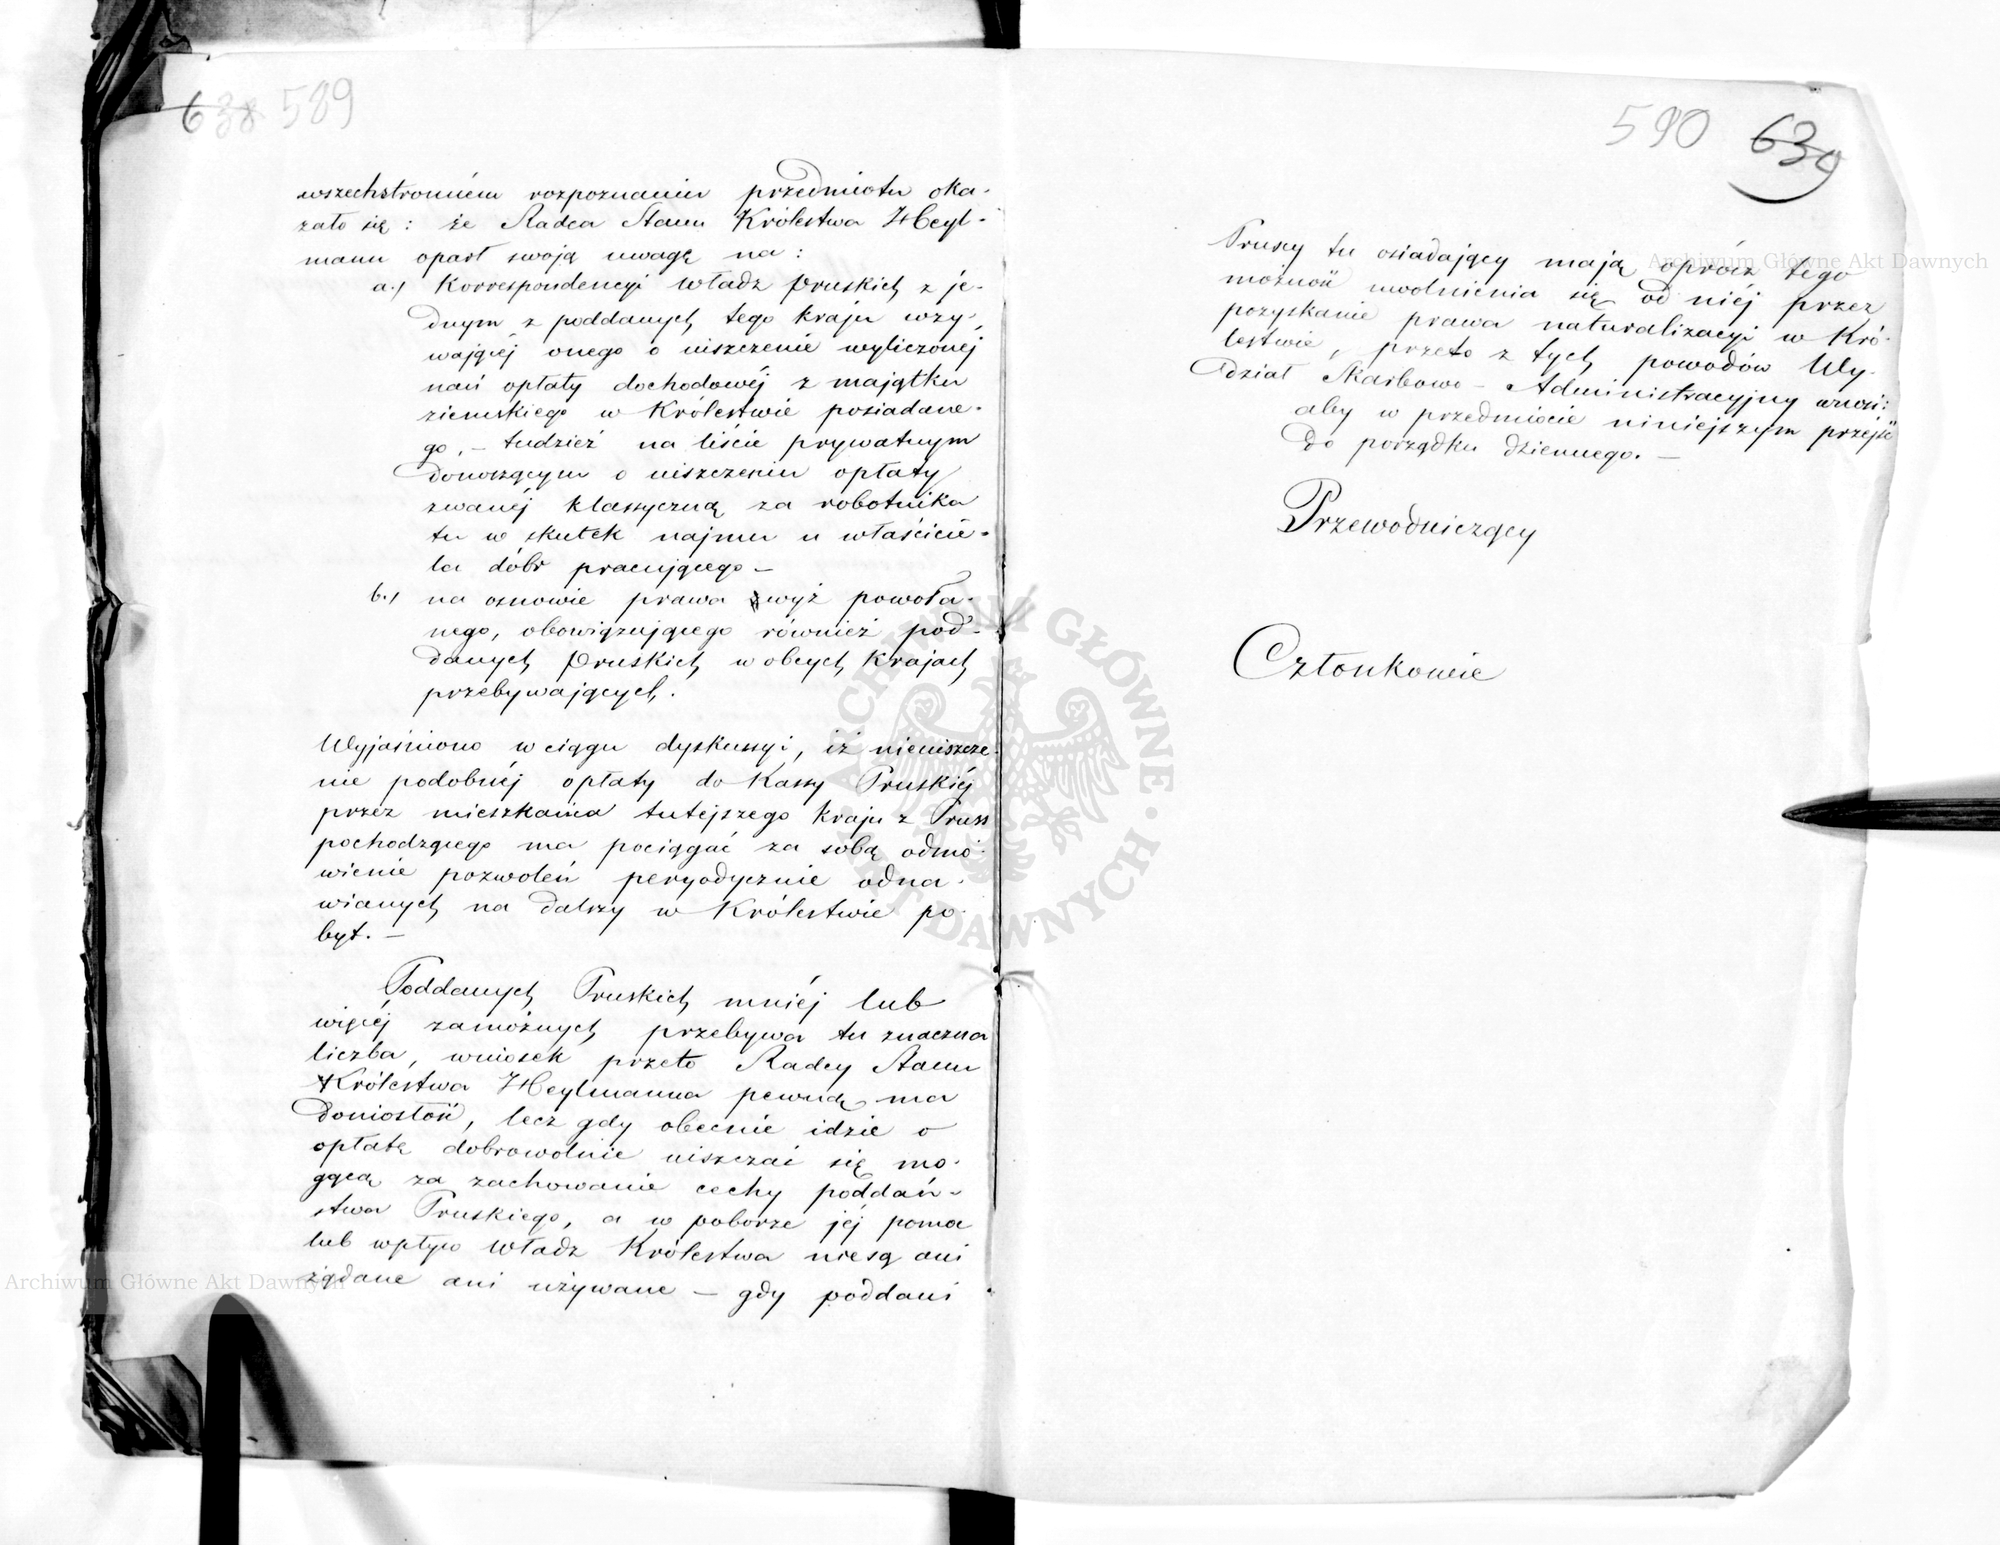 638 589
wszechstronném rozpoznaniu przedmiotu oka-
zało się: że Radca Stanu Królestwa Heyl-
mann oparł swoją uwagę na:
a.) Korrespondencyi Władz Pruskich z je-
dnym z poddanych tego kraju wzy-
wającéj onego o uiszczenie wyliczonéj
nań opłaty dochodowéj z majątku
ziemskiego w Królestwie posiadane-
go, – tudzież na liście prywatnym
donoszącym o uiszczeniu opłaty
zwanéj klassyczną za robotnika
tu w skutek najmu u właścicie-
la dóbr pracującego –
b.) na osnowie prawa wyż powoła-
nego, obowiązującego również pod-
danych Pruskich w obcych Krajach
przebywających.
Wyjaśniono w ciągu dyskussyi, iż nieuiszcze-
nie podobnéj opłaty do Kassy Pruskiéj
przez mieszkańca tutejszego kraju z Pruss
pochodzącego ma pociągać za sobą odmó-
wienie pozwoleń peryodycznie odna-
wianych na dalszy w Królestwie po-
byt. –
Poddanych Pruskich mniéj lub
więcéj zamożnych przebywa tu znaczna
liczba, wniosek przeto Radcy Stanu
Królestwa Heylmanna pewną ma
doniosłość, lecz gdy obecnie idzie o
opłatę dobrowolnie uiszczać się mo-
gącą za zachowanie cechy poddań-
stwa Pruskiego, a w poborze jéj pomoc
lub wpływ Władz Królestwa nie są ani
żądane ani używane – gdy poddani
590 639
Pruscy tu osiadający mają oprócz tego
możność uwolnienia się od niéj przez
pozyskanie prawa naturalizacyi w Kró-
lestwie, przeto z tych powodów Wy-
dział Skarbowo-Administracyjny wnosi:
aby w przedmiocie niniejszym przejść
do porządku dziennego. –
Przewodniczący
Członkowie
Archiwum Główne Akt Dawnych
Archiwum Główne Akt Dawnych
ARCHIWUM GŁÓWNE AKT DAWNYCH